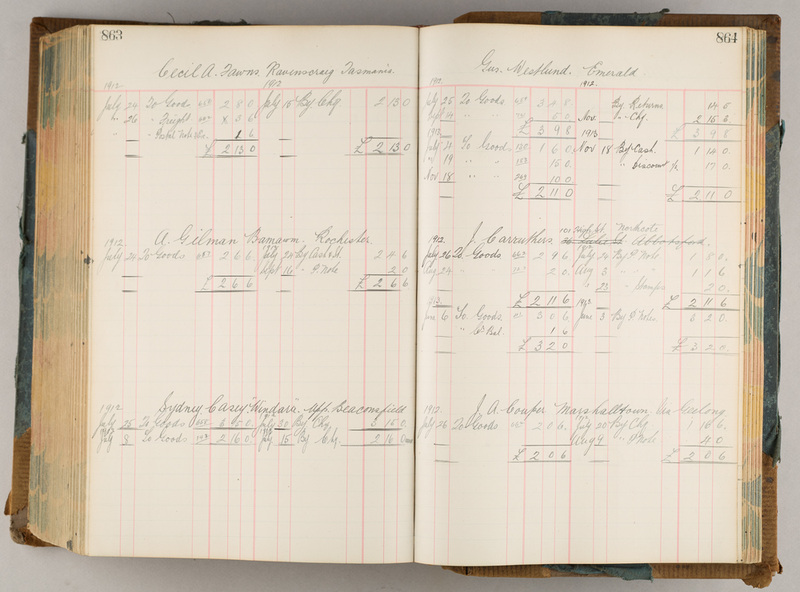 863
Cecil A. Fawns. Ravenscraig Tasmania.
1912 1912
July 24 To Goods 2 8 0 July 15 By Chq. 2 13 0
" 26 " Freight 3 6
" " Postal Note 1 6
£ 2 13 0 £ 2 13 0
1912 A. Gilman Bamawm. Rochester.
July 24 To Goods 2 6 6 July 24 By 2 4 6
Sept 16 " P. Note 2 0
£ 2 6 6 £ 2 6 6
1912 Sydney Casey Upp. Beaconsfield
July 25 To Goods July 30 By Chq.
July 8 To Goods 2 16 0 July 15 By Chq. 2 16 0
864
Gus. Westlund. Emerald
1912. 1912.
July 25 To Goods 3 4 8 By Returns 14 0
" " 5 0 Nov. " Chq. 2 15 8
1913 £ 3 9 8 1913 £ 3 9 8
To Goods 1 6 0 Nov 18 By Cash. 1 14 0
" 19 " " 15 0 " Discount 17 0
Nov 18 " " 10 0
£ 2 11 0 £ 2 11 0
1912. J. Carruthers. 101 High St Northcote
July 26 To Goods 2 9 6 July 20 By P. Note 1 8 0
Aug 24 " 2 0 Aug 3 " " 1 1 6
" 23 " Stamps 2 0
1913 £ 2 11 6 1913 £ 2 11 6
June 6 To Goods 3 0 6 June 3 By P. Note 3 2 0
" 1 6
£ 3 2 0 £ 3 2 0
1912. J. A. Couper Marshalltown. Via Geelong
July 26 To Goods 2 0 6 July 20 By Chq 1 16 6
Aug 9 " P. Note 4 0
£ 2 0 6 £ 2 0 6